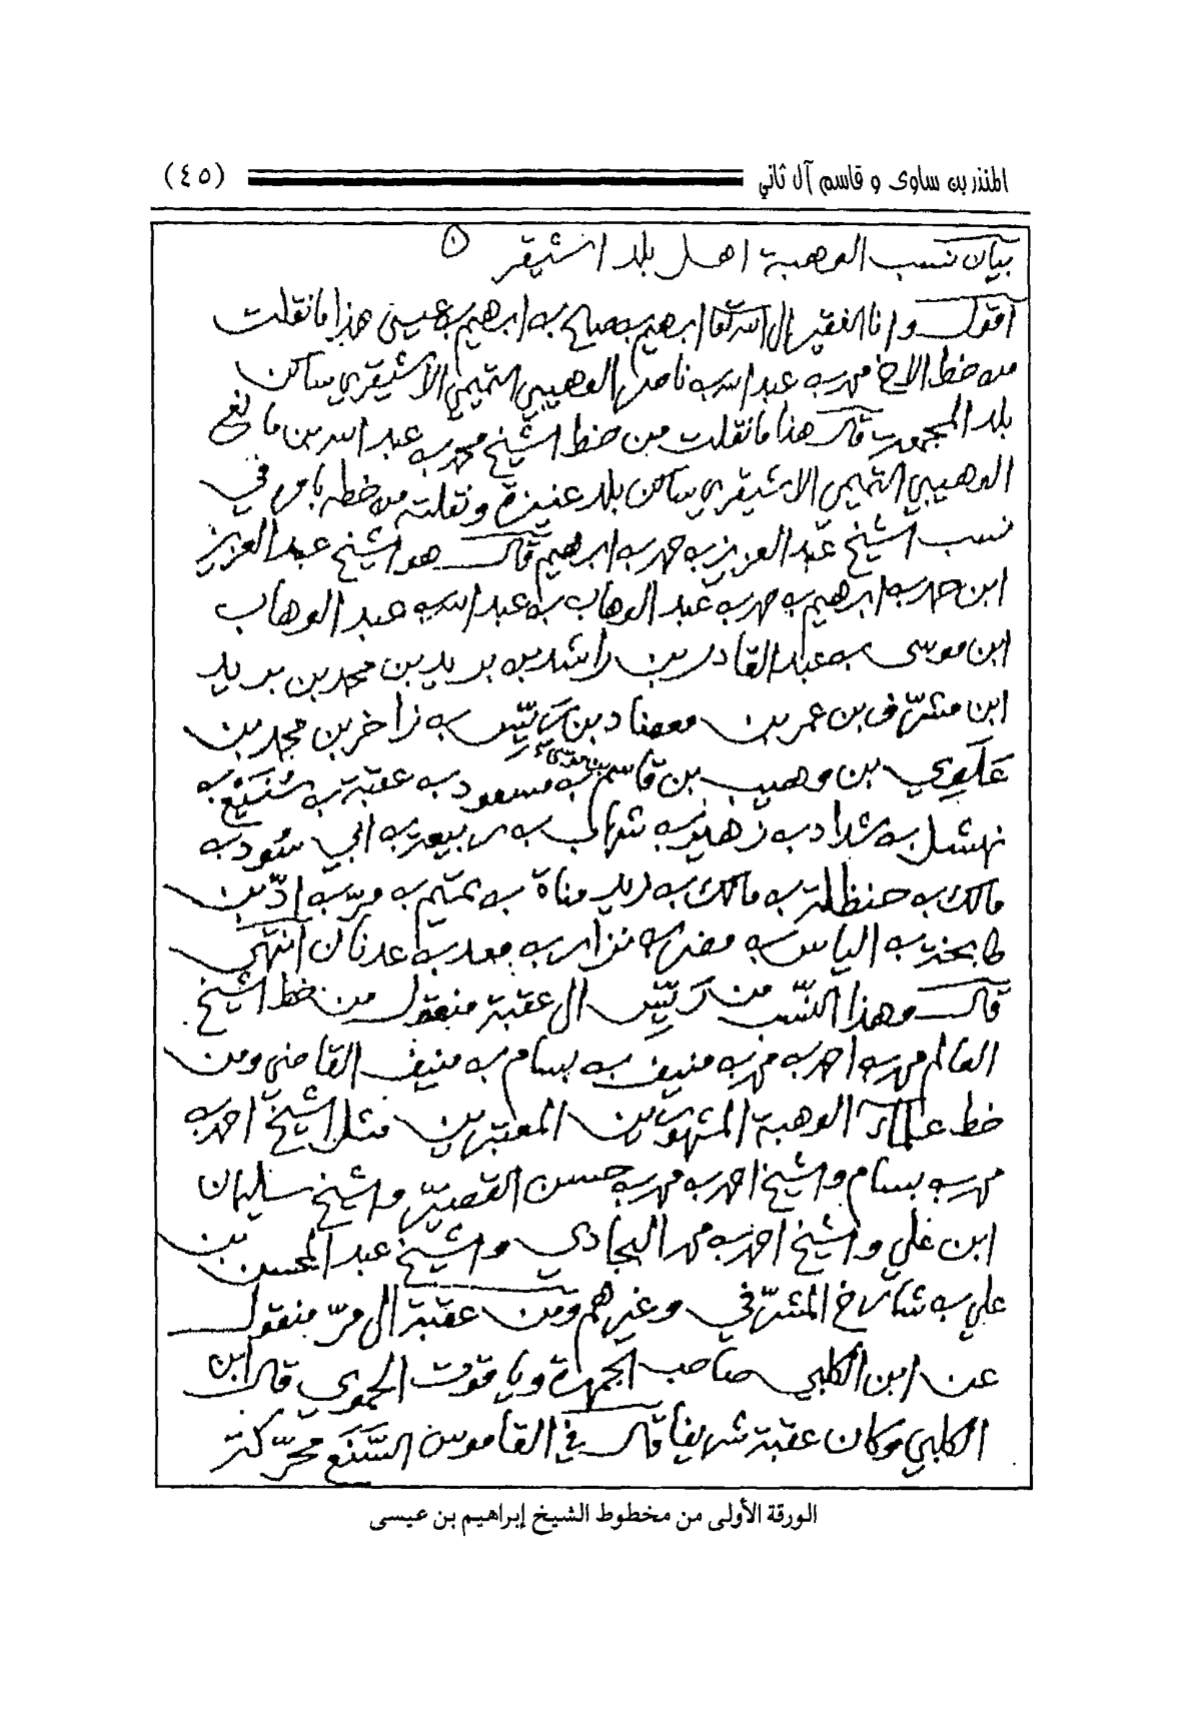 المنذر بن ساوى و قاسم آل ثاني (٤٥)
بيان نسب الوهبة اهل بلد اشيقر
اقول وانا الفقير الى الله تعالى ابرهيم بن صالح بن ابرهيم بن عيسى هذا ما نقلت
من خط الاخ محمد بن عبد الله بن ناصر الوهيبي التميمي الاشيقري ساكن
بلد المجمعة قال هذا ما نقلت من خط الشيخ محمد بن عبد الله بن مانع
الوهيبي التميمي الاشيقري ساكن بلد عنيزة ونقلته من خطه بامر في
نسب الشيخ عبد العزيز بن حمد بن ابرهيم قال هو الشيخ عبد العزيز
ابن حمد بن ابرهيم بن حمد بن عبد الوهاب بن عبد الله بن عبد الوهاب
ابن موسى بن عبد القادر بن راشد بن بريد بن محمد بن بريد
ابن مشرّف بن عمر بن معضاد بن رَيّس بن زاخر بن محمد بن
عَلَوِي بن وهيب بن قاسم بن موسى بن مسعود بن عقبة بن سُنَيْع بن
نهشل بن شداد بن زهير بن شهاب بن ربيعة بن ابي سُود بن
مالك بن حنظلة بن مالك بن زيد مناة بن تميم بن مرّ بن ادّ بن
طابخة بن الياس بن مضر بن نزار بن معد بن عدنان انتهى
قال وهذا النسّب من رَيّس الى عقبة منقول من خط الشيخ
العالم محمد بن احمد بن محمد بن منيف بن بسام بن منيف القاضي ومن
خط علماء الوهبة المشهورين المعتبرين مثل الشيخ احمد بن
محمد بن بسام والشيخ احمد بن محمد بن حسن القصيّر والشيخ سليمان
ابن علي والشيخ احمد بن محمد البجادي والشيخ عبد المحسن بن
علي بن شارخ المشرّفي وغيرهم ومن عقبة الى مرّ منقول
عن ابن الكلبي صاحب الجمهرة وياقوت الحموي قال ابن
الكلبي وكان عقبة شريفا قال في القاموس السَّنَع محرّكة
الورقة الأولى من مخطوط الشيخ إبراهيم بن عيسى